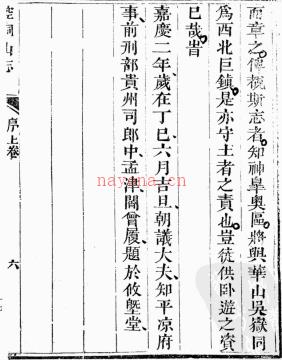 而章之俾覩斯志者知神臯奧區將與華山吳嶽同
爲西北巨鎮是亦守土者之責也豈徒供卧遊之資
已哉旹
嘉慶二年歲在丁巳六月吉旦朝議大夫知平凉府
事前刑部貴州司郎中孟津閻曾履題於攸塈堂
空同山志
序上卷
六
nayona.cn